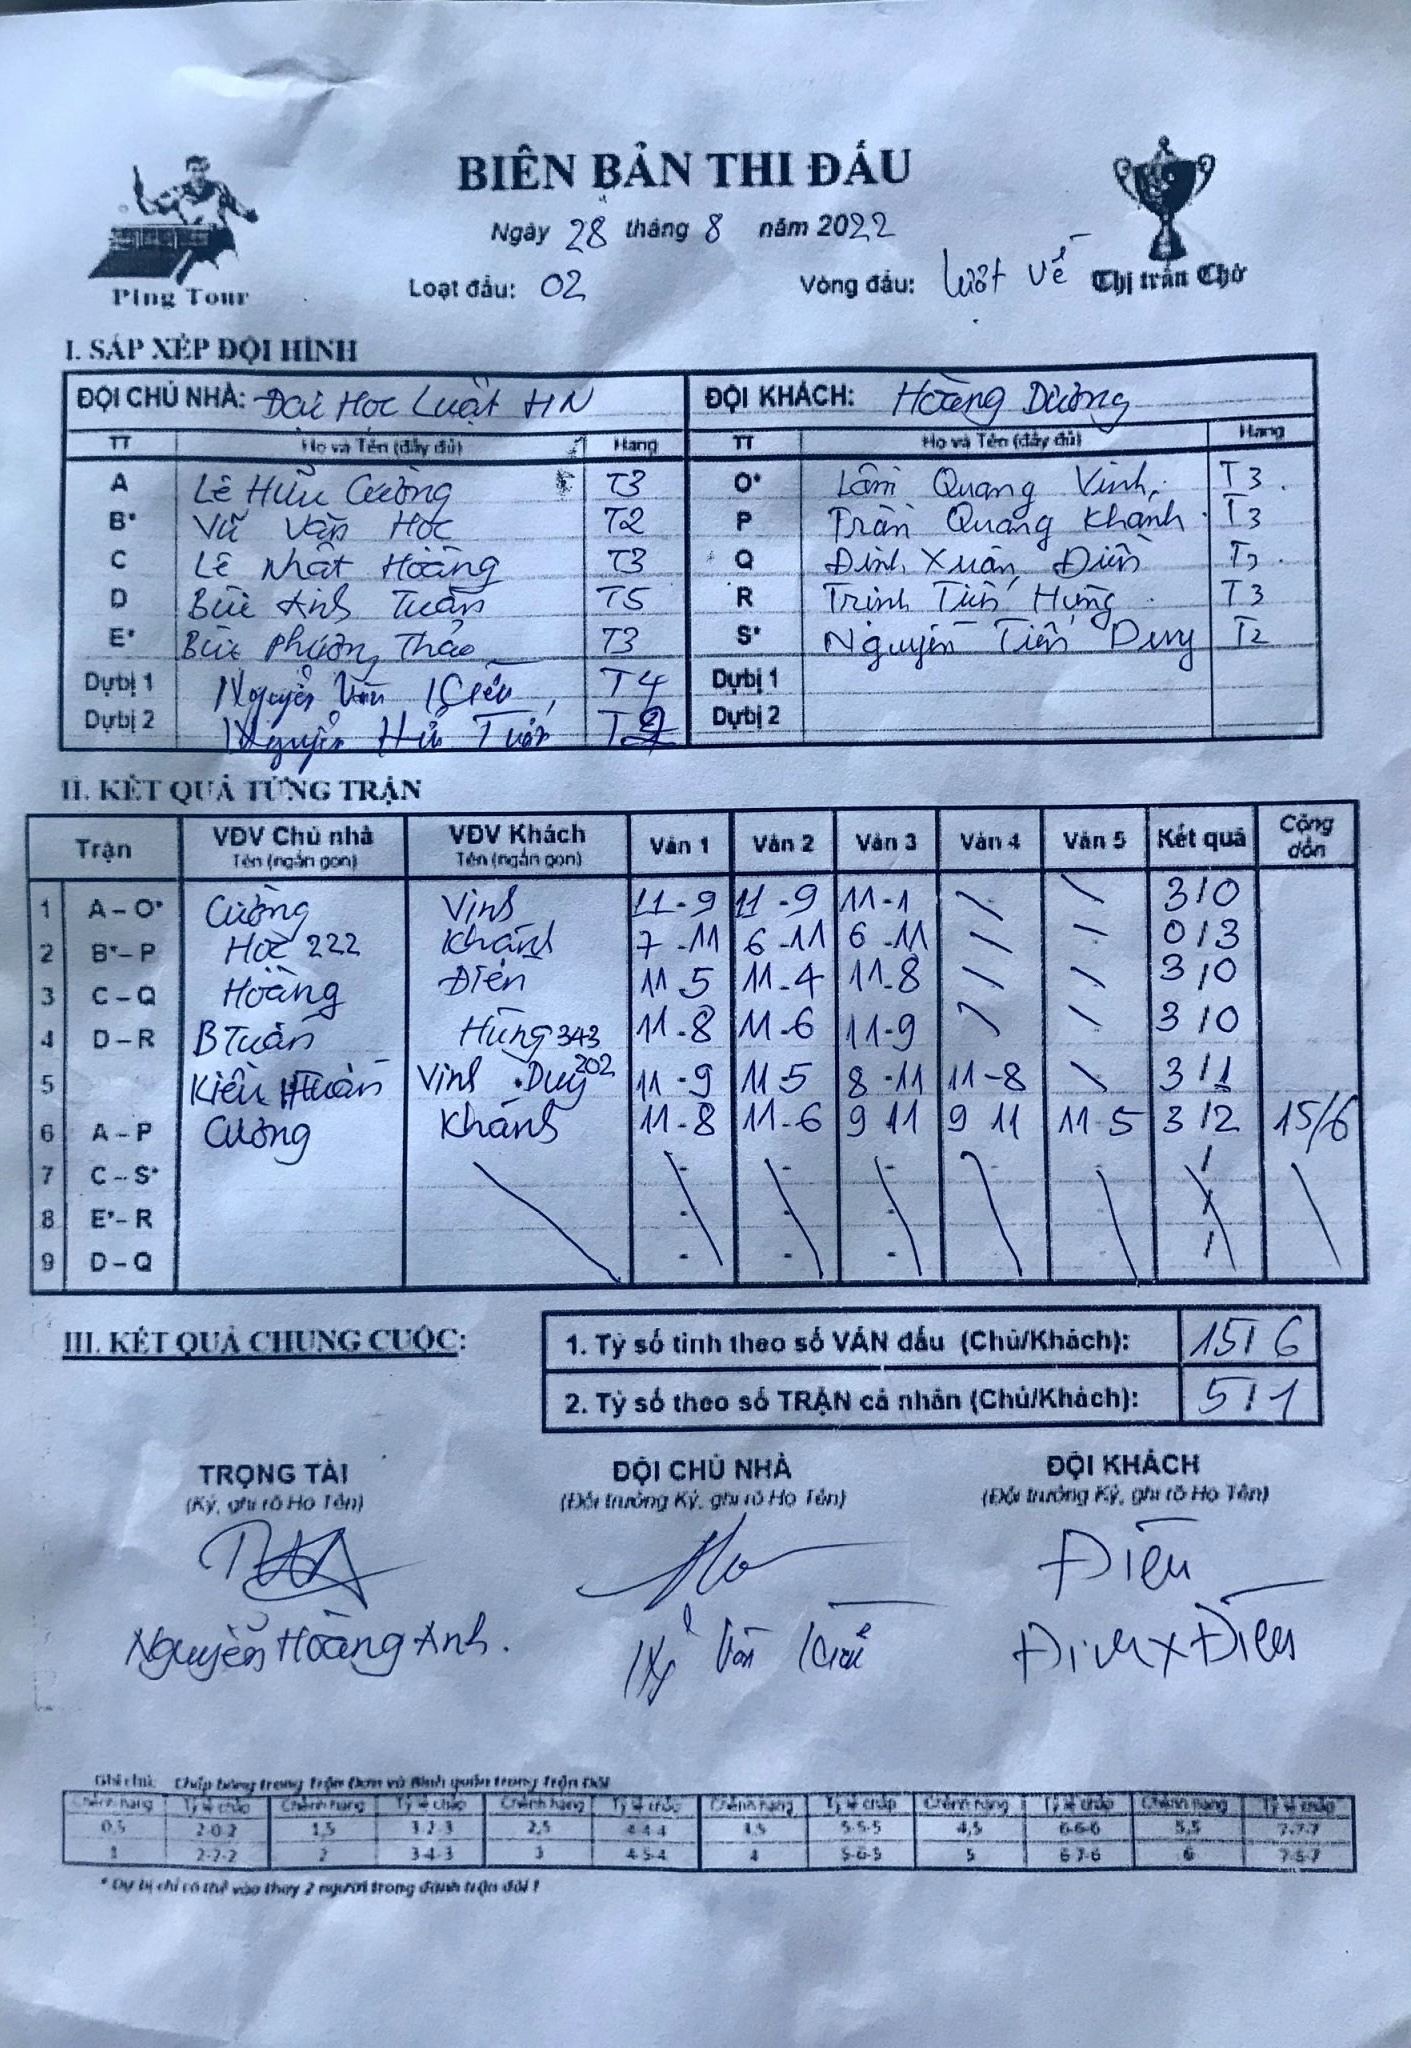 BIÊN BẢN THI ĐẤU
Ngày 28 tháng 8 năm 2022
Ping Tour
Loạt đấu: 02 Vòng đấu: lượt về
Thị trấn Chờ
I. SẮP XẾP ĐỘI HÌNH
ĐỘI CHỦ NHÀ: Đại Học Luật HN ĐỘI KHÁCH: Hoàng Dương
TT Họ và Tên (đầy đủ) Hạng TT Họ và Tên (đầy đủ) Hạng
A Lê Hữu Cường T3 O* Lâm Quang Vinh T3
B* Vũ Văn Học T2 P Trần Quang Khánh T3
C Lê Nhật Hoàng T3 Q Đinh Xuân Điền T3
D Bùi Anh Tuấn T5 R Trịnh Tiến Hưng T3
E* Bùi Phương Thảo T3 S* Nguyễn Tiến Duy T2
Dự bị 1 Nguyễn Văn Kiều T4 Dự bị 1
Dự bị 2 Nguyễn Hữu Dự bị 2
II. KẾT QUẢ TỪNG TRẬN
Trận VĐV Chủ nhà VĐV Khách Ván 1 Ván 2 Ván 3 Ván 4 Ván 5 Kết quả Cộng dồn
Tên (ngắn gọn) Tên (ngắn gọn)
1 A – O* Cường Vinh 11-9 11-9 11-1 3/0
2 B* – P Học 222 Khánh 7-11 6-11 6-11 0/3
3 C – Q Hoàng Điền 11-5 11-4 11-8 3/0
4 D – R BTuấn Hưng 343 11-8 11-6 11-9 3/0
5 Kiều Vinh - Duy 202 11-9 11-5 8-11 11-8 3/1
6 A – P Cường Khánh 11-8 11-6 9-11 9-11 11-5 3/2 15/6
7 C – S* - - - - - /
8 E* – R - - - /
9 D – Q - - - /
III. KẾT QUẢ CHUNG CUỘC:
1. Tỷ số tính theo số VÁN đấu (Chủ/Khách): 15/6
2. Tỷ số theo số TRẬN cá nhân (Chủ/Khách): 5/1
TRỌNG TÀI ĐỘI CHỦ NHÀ ĐỘI KHÁCH
(Ký, ghi rõ Họ Tên) (Đội trưởng Ký, ghi rõ Họ Tên) (Đội trưởng Ký, ghi rõ Họ Tên)
Điền
Nguyễn Hoàng Anh. Ng Văn Kiều Đinh X Điền
Ghi chú: Chấp bóng trong Trận Đơn và Bình quân trong Trận Đôi
Chênh hạng Tỷ lệ chấp Chênh hạng Tỷ lệ chấp Chênh hạng Tỷ lệ chấp Chênh hạng Tỷ lệ chấp Chênh hạng Tỷ lệ chấp Chênh hạng Tỷ lệ chấp
0,5 2-0-2 1,5 3-2-3 2,5 4-4-4 3,5 5-5-5 4,5 6-6-6 5,5 7-7-7
1 2-2-2 2 3-4-3 3 4-5-4 4 5-6-5 5 6-7-6 6
* Dự bị chỉ có thể vào thay 2 người trong đánh trận đôi !